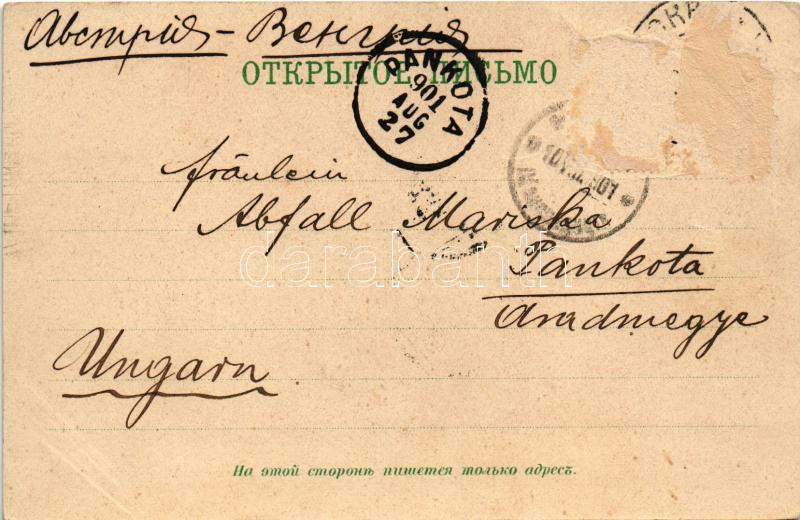 Австрія - Венгрія
ОТКРЫТОЕ ПИСЬМО
PANKOTA
901
AUG
27
fräulein
Abfall Mariska
Pankota
Aradmegye
Ungarn
darabanth
На этой сторонѣ пишется только адресъ.